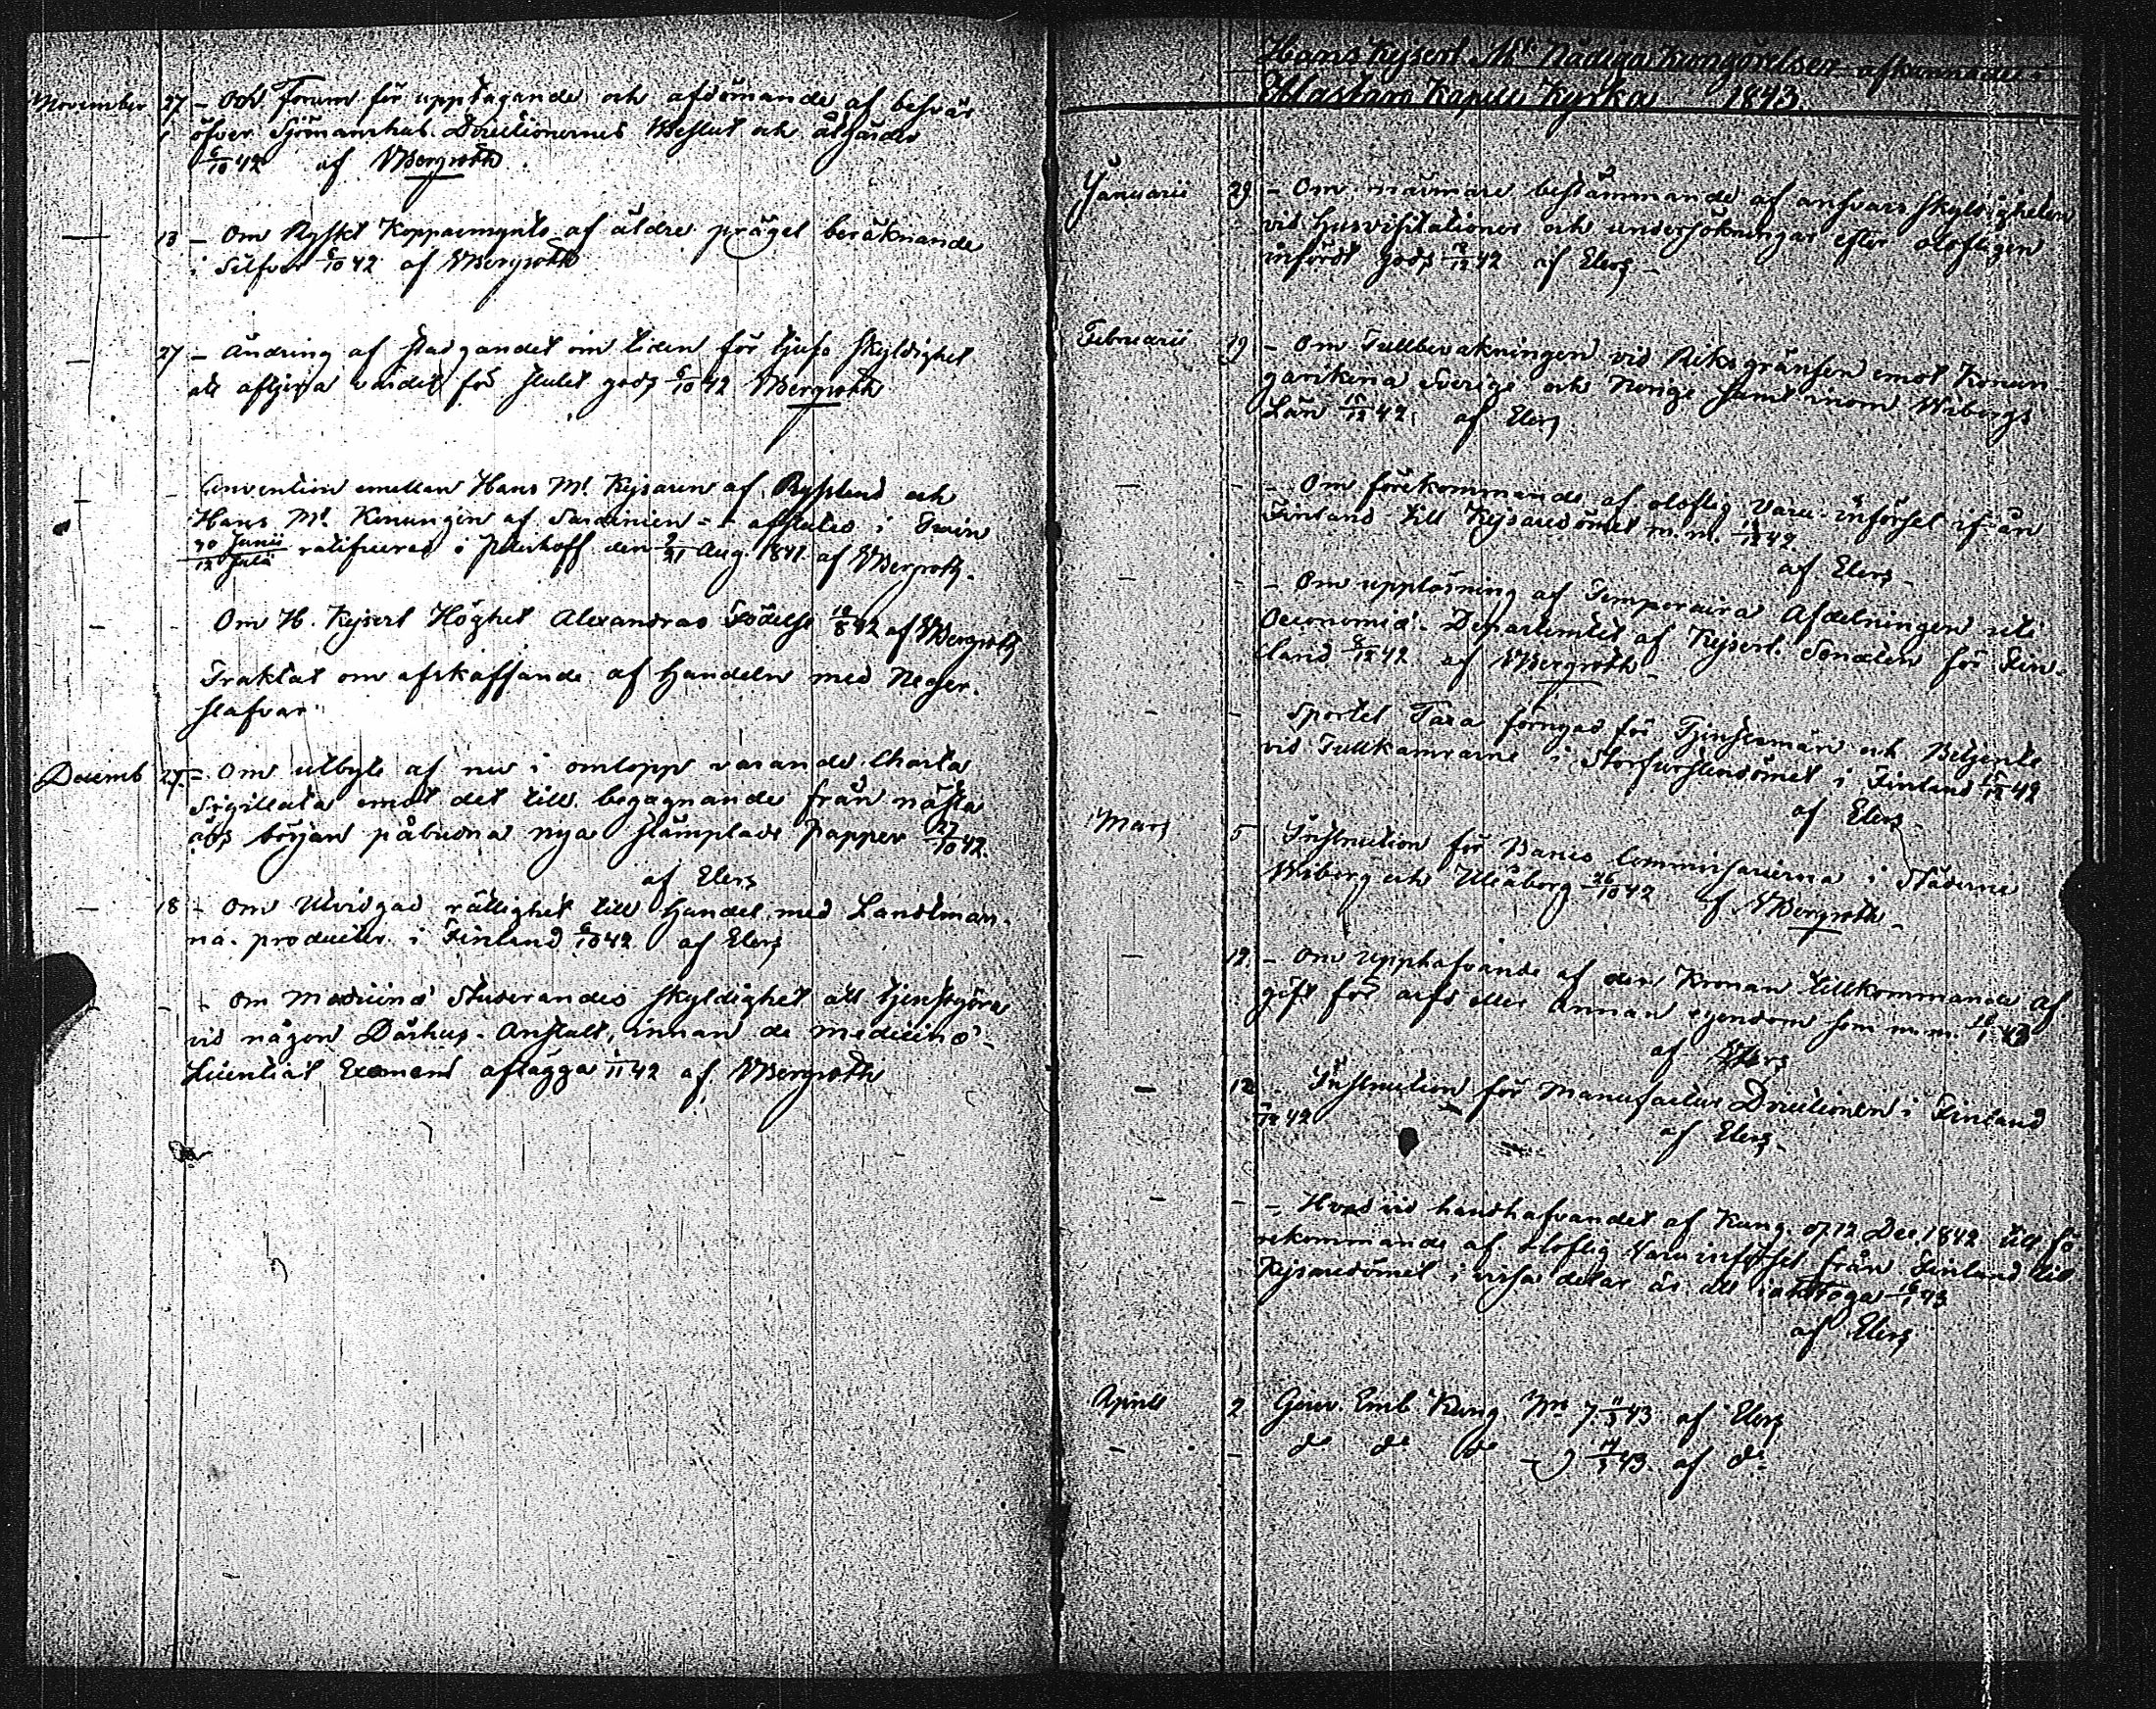 November 27 - Och Forum för upptagande och afdömande af besvär
öfver Sjömanshus Directionernes Beslut och åtgärder
6/10 42 af VBergroth
— 13 - Om Ryskt Kopparmynts af äldre prägel beräknande
i Silfver 6/10 42 af VBergroth
— 27 - Ändring af stadgandet om tiden för tjufs skyldighet
att aftjena värdet för stulet gods 6/10 42 VBergroth
— - Convention emellan Hans Mt Kejsaren af Ryssland och
Hans Mt Konungen af Sardinien - - afslutes i Turin
30 Junii / 12 Julii ratificerad i Peterhoff den 9/21 Aug. 1841. af VBergroth.
— - Om H. Kejserl Höghet Alexandras Födelse 18/8 42 af VBergroth
Traktat om afskaffande af Handeln med Neger-
slafvar
Decemb 27. - Om utbyte af nu i omlopp varande Charta
Sigillata emot det till begagnande från nästa
års början påbudna nya stämplade papper 27/10 42.
af Elers
— 18 - Om Utvidgad rättighet till Handel med Landtman-
na-producter i Finland 6/10 42 af Elers
— - - Om Medicinæ Studerandes skyldighet att tjenstgöra
vid någon Dårhus-Anstalt, innan de medicinæ-
Licentiat Examen aflägga 1/11 42 af VBergroth
Hans Kejserl. Mts Nådiga Kungörelser afkunnade i
Kapell Kyrka 1843.
Januarii 29 - Om närmare bestämmande af ansvars skyldigheten
vid Husvisitationer och undersökningar efter olofligen
infördt gods 12/12 42 af Elers -
Februarii 19 - Om Tullbevakningen vid Riksgränsen emot Konun-
garikena Sverige och Norige samt inom Wiborgs
Län 15/12 42. af Elers
— - - Om förekommande af oloflig Varu-införsel ifrån
Finland till Kejsaredömet m.m. 12/12 42.
af Elers -
— - - Om upplösning af Temporaira Afdelningen uti
Oeconomiæ-Departemtet af Kejserl. Senaten för Fin-
land 6/12 42 af VBergroth -
— - Sportel Taxa förnyad för Tjenstemän och Betjente
vid Tullkamrarne i Storfurstendömet i Finland 15/12 42
af Elers
Mars 5 Instruction för Banco Commissarierna i Städerne
Wiborg och Uleåborg 26/10 42 af VBergroth -
— 12 - Om Upphäfvande af den Kronan tillkommande af
gift för arfs eller annan egendom som m.m. 10/1 43
af Elers
— 12 . Instruction för Manufactur Directionen i Finland
12 42 af Elers -
— - -, Hvad vid handhafvandet af Kung. af 12 Dec. 1842 till fö
rekommande af oloflig Varu införsel från Finland till
Kejsaredömet i vissa delar är att iakttaga 16/1 43
af Elers
Aprill 2 Guver. Emb. Kung No 7 11/3 43 af Elers
— - do do do - 9 14/3 43. af do